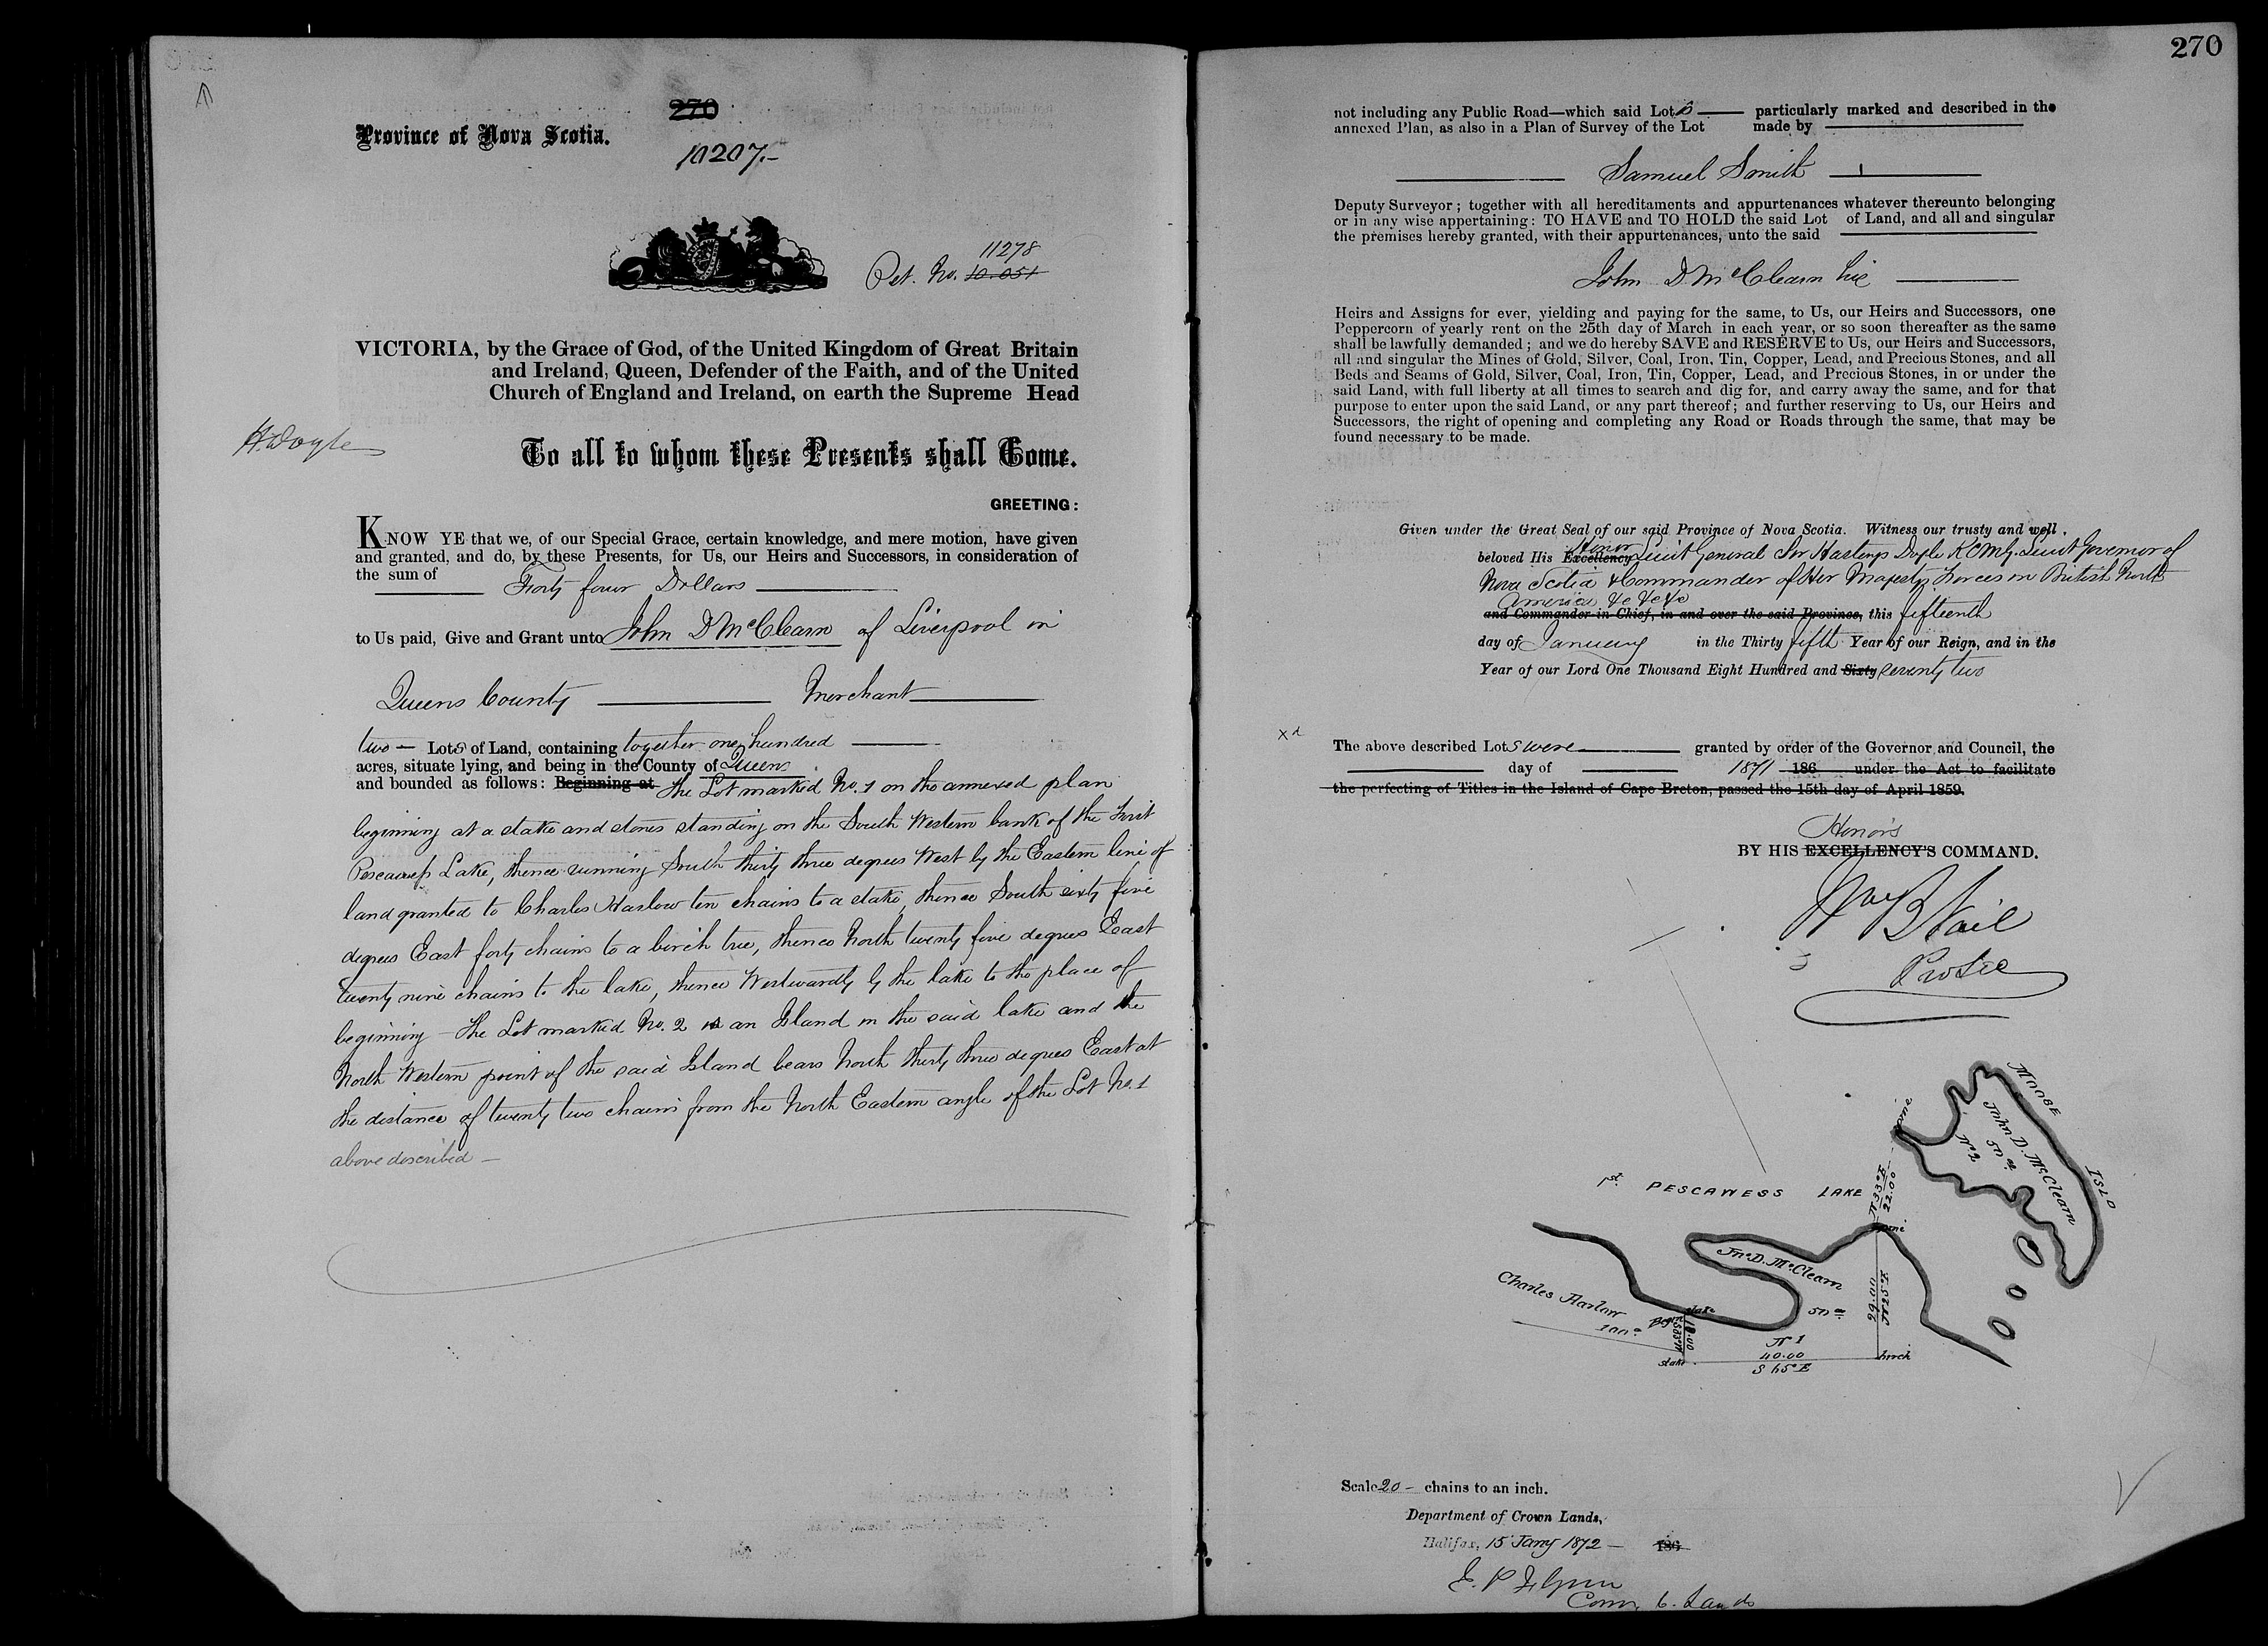 270
Province of Nova Scotia.
10207.-
11278
Pet. No. 10.051
VICTORIA, by the Grace of God, of the United Kingdom of Great Britain
and Ireland, Queen, Defender of the Faith, and of the United
Church of England and Ireland, on earth the Supreme Head
H. Doyle
To all to whom these Presents shall Come.
GREETING:
KNOW YE that we, of our Special Grace, certain knowledge, and mere motion, have given
and granted, and do, by these Presents, for Us, our Heirs and Successors, in consideration of
the sum of
Forty four Dollars
to Us paid, Give and Grant unto John D McClearn of Liverpool in
Queens County Merchant
two — Lots of Land, containing together one hundred
acres, situate lying, and being in the County of Queens
and bounded as follows: Beginning at the Lot marked No. 1 on the annexed plan
beginning at a stake and stones standing on the South Western bank of the First
Pescawess Lake, thence running South thirty three degrees West by the Eastern line of
land granted to Charles Harlow ten chains to a stake, thence South sixty five
degrees East forty chains to a birch tree, thence North twenty five degrees East
twenty nine chains to the lake, thence Westwardly by the lake to the place of
beginning — the Lot marked No. 2 is an Island in the said lake and the
North Western point of the said Island bears North thirty three degrees East at
the distance of twenty two chains from the North Eastern angle of the Lot No. 1
above described —
270
not including any Public Road—which said Lots particularly marked and described in the
annexed Plan, as also in a Plan of Survey of the Lot made by
Samuel Smith
Deputy Surveyor; together with all hereditaments and appurtenances whatever thereunto belonging
or in any wise appertaining: TO HAVE and TO HOLD the said Lot of Land, and all and singular
the premises hereby granted, with their appurtenances, unto the said
John D. McClearn his
Heirs and Assigns for ever, yielding and paying for the same, to Us, our Heirs and Successors, one
Peppercorn of yearly rent on the 25th day of March in each year, or so soon thereafter as the same
shall be lawfully demanded; and we do hereby SAVE and RESERVE to Us, our Heirs and Successors,
all and singular the Mines of Gold, Silver, Coal, Iron, Tin, Copper, Lead, and Precious Stones, and all
Beds and Seams of Gold, Silver, Coal, Iron, Tin, Copper, Lead, and Precious Stones, in or under the
said Land, with full liberty at all times to search and dig for, and carry away the same, and for that
purpose to enter upon the said Land, or any part thereof; and further reserving to Us, our Heirs and
Successors, the right of opening and completing any Road or Roads through the same, that may be
found necessary to be made.
Given under the Great Seal of our said Province of Nova Scotia. Witness our trusty and well
Honor
beloved His Excellency Lieut General Sir Hastings Doyle KCMG. Lieut Governor of
Nova Scotia & Commander of Her Majestys Forces in British North
America &c &c &c
and Commander in Chief, in and over the said Province, this fifteenth
day of January in the Thirty fifth Year of our Reign, and in the
Year of our Lord One Thousand Eight Hundred and Sixty seventy two
The above described Lots were granted by order of the Governor and Council, the
day of 1871 186 under the Act to facilitate
the perfecting of Titles in the Island of Cape Breton, passed the 15th day of April 1859.
Honor's
BY HIS EXCELLENCY'S COMMAND.
Wm B Vail
Pro Sec
MOOSE
ISLD
John D. McClearn
50 ac
No 2
pine
1st. PESCAWESS LAKE
N 33° E
22.00
pine
Jno D. McClearn
50 a
Charles Harlow
100 a
Beg
stake
S 33° W
10.00
stake
No 1
40.00
S 65° E
29.00
N 25° E
birch
Scale 20 — chains to an inch.
Department of Crown Lands,
Halifax, 15 Jany 1872 — 186
E. P. Flynn
Com. C. Lands